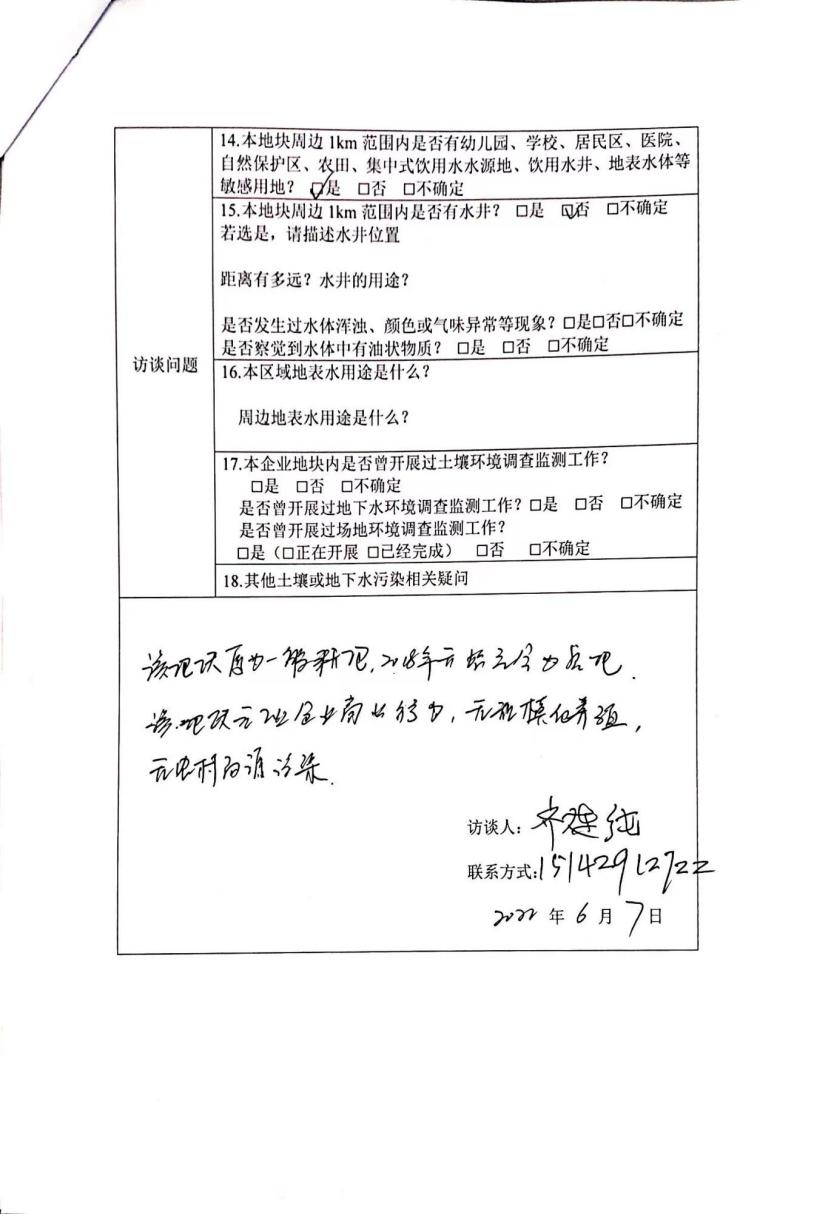 14.本地块周边 1km 范围内是否有幼儿园、学校、居民区、医院、
自然保护区、农田、集中式饮用水水源地、饮用水井、地表水体等
敏感用地？ ☑是 □否 □不确定
15.本地块周边 1km 范围内是否有水井？ □是 ☑否 □不确定
若选是，请描述水井位置
距离有多远？水井的用途？
是否发生过水体浑浊、颜色或气味异常等现象？□是□否□不确定
是否察觉到水体中有油状物质？ □是 □否 □不确定
访谈问题
16.本区域地表水用途是什么？
周边地表水用途是什么？
17.本企业地块内是否曾开展过土壤环境调查监测工作？
□是 □否 □不确定
是否曾开展过地下水环境调查监测工作？□是 □否 □不确定
是否曾开展过场地环境调查监测工作？
□是（□正在开展 □已经完成） □否 □不确定
18.其他土壤或地下水污染相关疑问
该地块原为一般耕地,2018年开始至今为
该地块无工业企业商业行为，无规模化养殖，
无史料污源污染.
访谈人：
联系方式:15142912722
2022 年 6 月 7 日